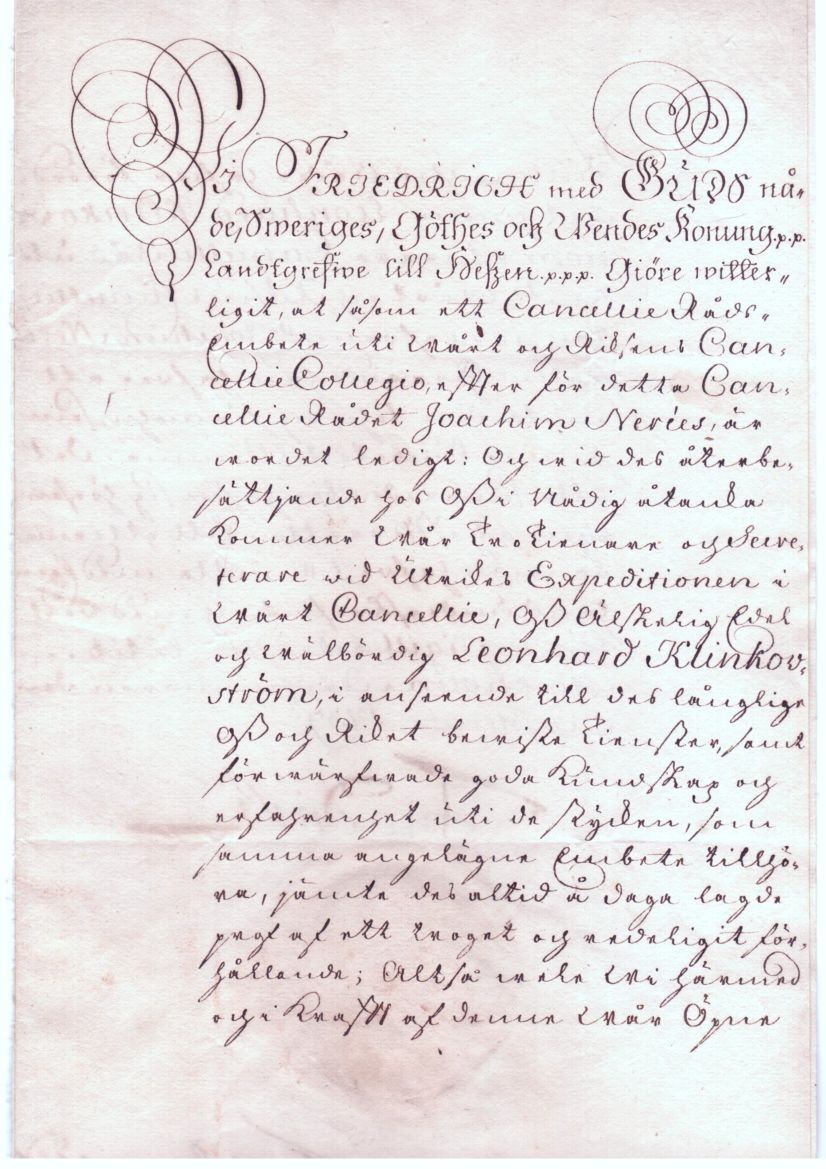 Wi FRIEDRICH med GUDS nå-
de, Sweriges, Göthes och Wendes Konung p.p.
Landtgrefwe till Heszen p.p.p. Giöre witter-
ligit, at såsom ett Cancellie Råds-
Embete uti wårt och Riksens Can-
cellie Collegio, effter för detta Can-
cellie Rådet Joachim Neries, är
wordet ledigt: Och wid des återbe-
sättjande hos Oß i Nådig åtanka
kommer wår Tro Tienare och Secre-
terare wid Utrikes Expeditionen i
wårt Cancellie, Oß Älskelig Edel
och wälbördig Leonhard Klinkow-
ström, i anseende till des långlige
Oß och Riket bewiste tienster, samt
förwärfwade goda kundskap och
erfahrenhet uti de stycken, som
samma angelägne Embete tillhö-
ra, jämte des altid å daga lagde
prof af ett troget och redeligit för-
hållande; Altså wele wi härmed
och i krafft af denne wår Öpne